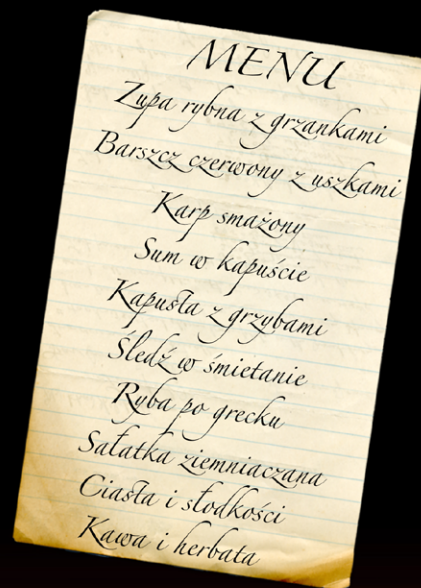 MENU
Zupa rybna z grzankami
Barszcz czerwony z uszkami
Karp smażony
Sum w kapuście
Kapusta z grzybami
Śledź w śmietanie
Ryba po grecku
Sałatka ziemniaczana
Ciasta i słodkości
Kawa i herbata